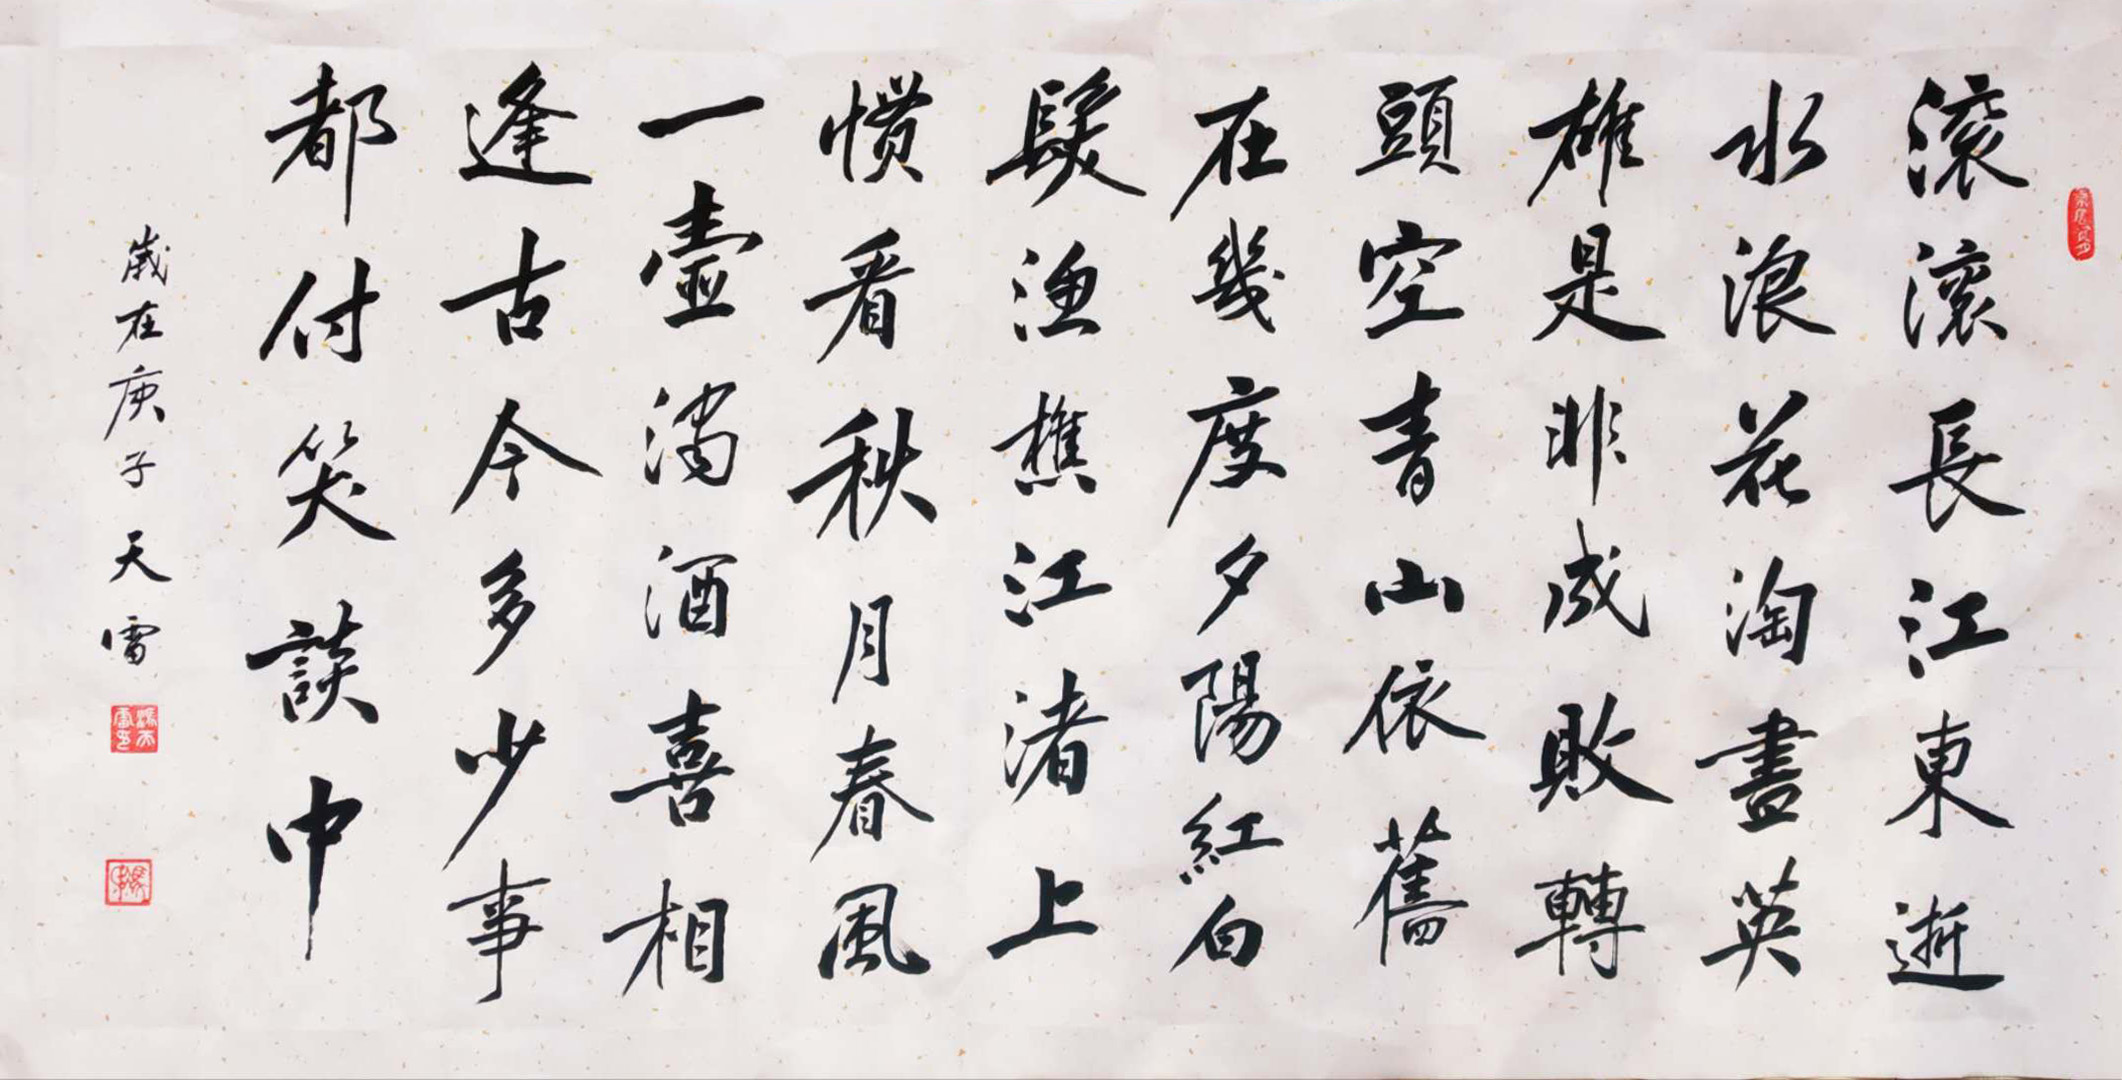 滚滚長江東逝
水浪花淘盡英
雄是非成敗轉
頭空青山依舊
在幾度夕陽紅白
髮渔樵江渚上
惯看秋月春風
一壺濁酒喜相
逢古今多少事
都付笑談中
歲在庚子天雷